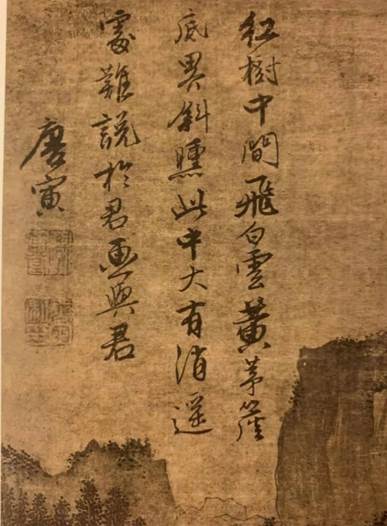 紅樹中間飛白雲黃茅簷
底界斜曛此中大有消遥
處難説於君畫與君
唐寅